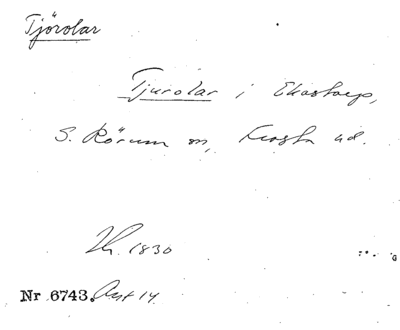 Tjörolar
Tjurolar i Ekastorp,
S. Rörum sn, Frosta hd.
1830
Nr 6743. Avst 14